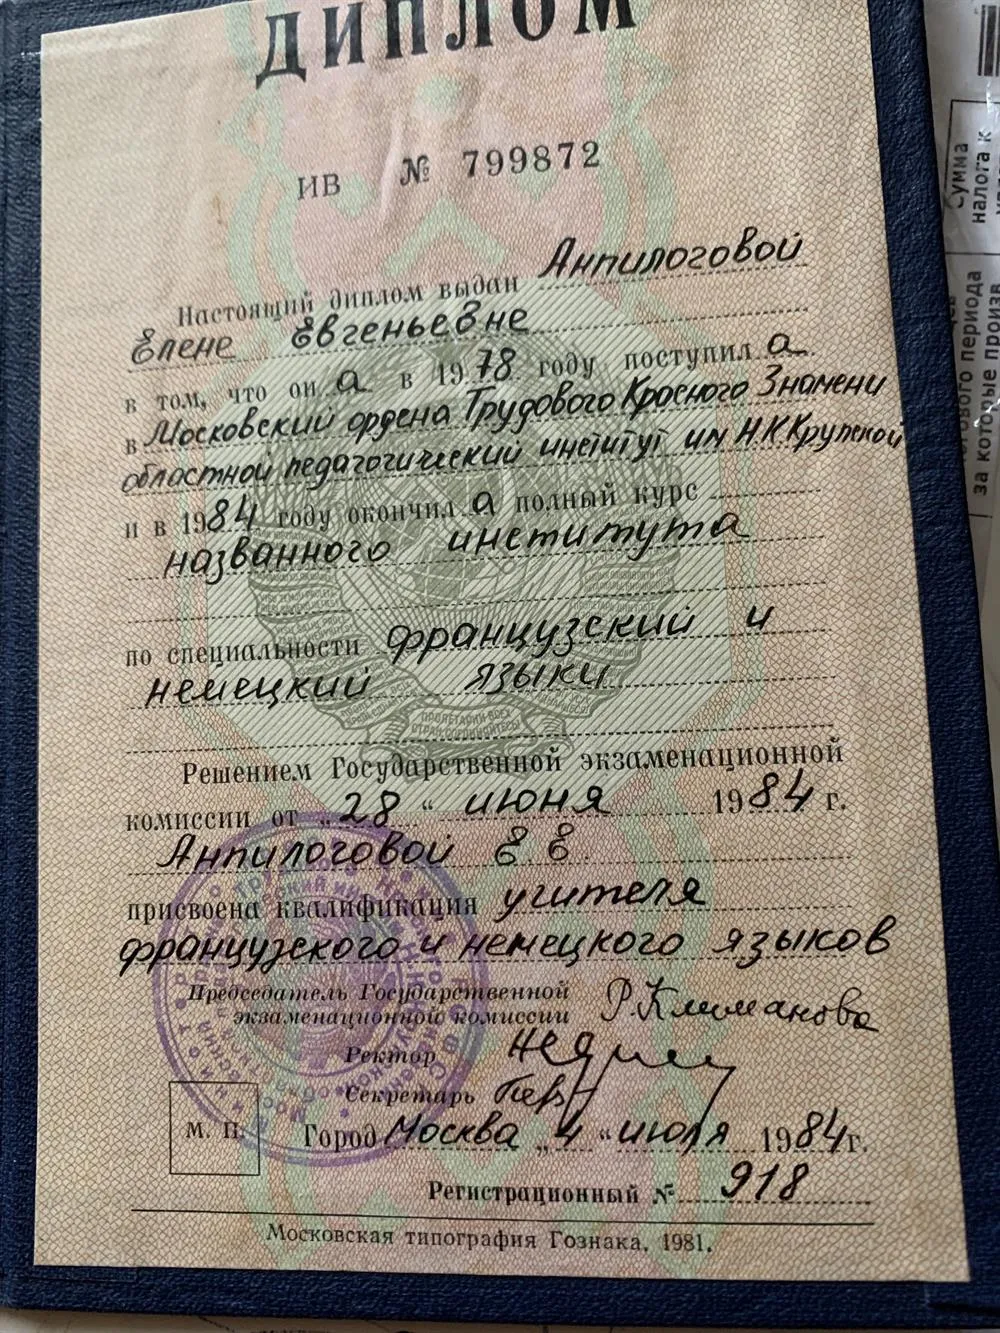 ДИПЛОМ
ИВ № 799872
Настоящий диплом выдан Анпилоговой
Елене Евгеньевне
в том, что он а в 1978 году поступил а
в Московский ордена Трудового Красного Знамени
областной педагогический институт им Н.К.Крупской
и в 1984 году окончил а полный курс
названного института
по специальности французский и
немецкий языки
ПРОЛЕТАРИИ ВСЕХ
СТРАН, СОЕДИНЯЙТЕСЬ!
Решением Государственной экзаменационной
комиссии от „28“ июня 1984 г.
Анпилоговой Е Е.
присвоена квалификация учителя
французского и немецкого языков
Председатель Государственной
экзаменационной комиссии Р.Климанова
Ректор
Секретарь
М. П. Город Москва „4“ июля 1984 г.
Регистрационный № 918
Московская типография Гознака. 1981.
Сумма
налога к
периода
за которые произв